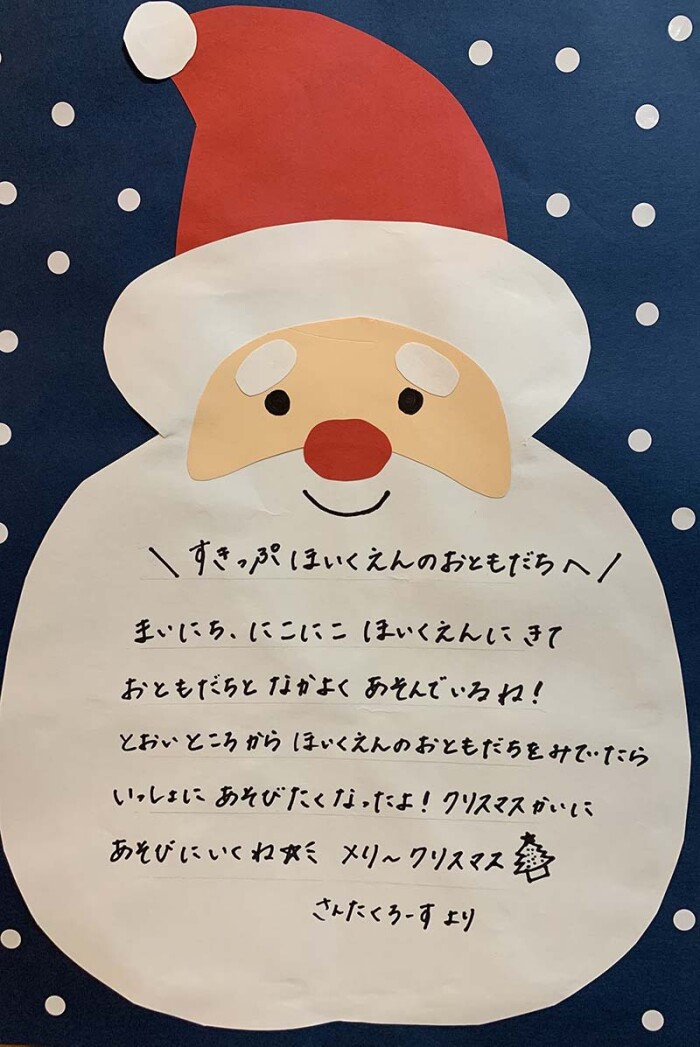 \ すきっぷ ほいくえんのおともだちへ /
まいにち、にこにこ ほいくえんに きて
おともだちと なかよく あそんでいるね!
とおい ところから ほいくえんのおともだちをみていたら
いっしょに あそびたくなったよ! クリスマスかいに
あそびにいくね☆ミ メリ〜クリスマス
さんたくろーす より